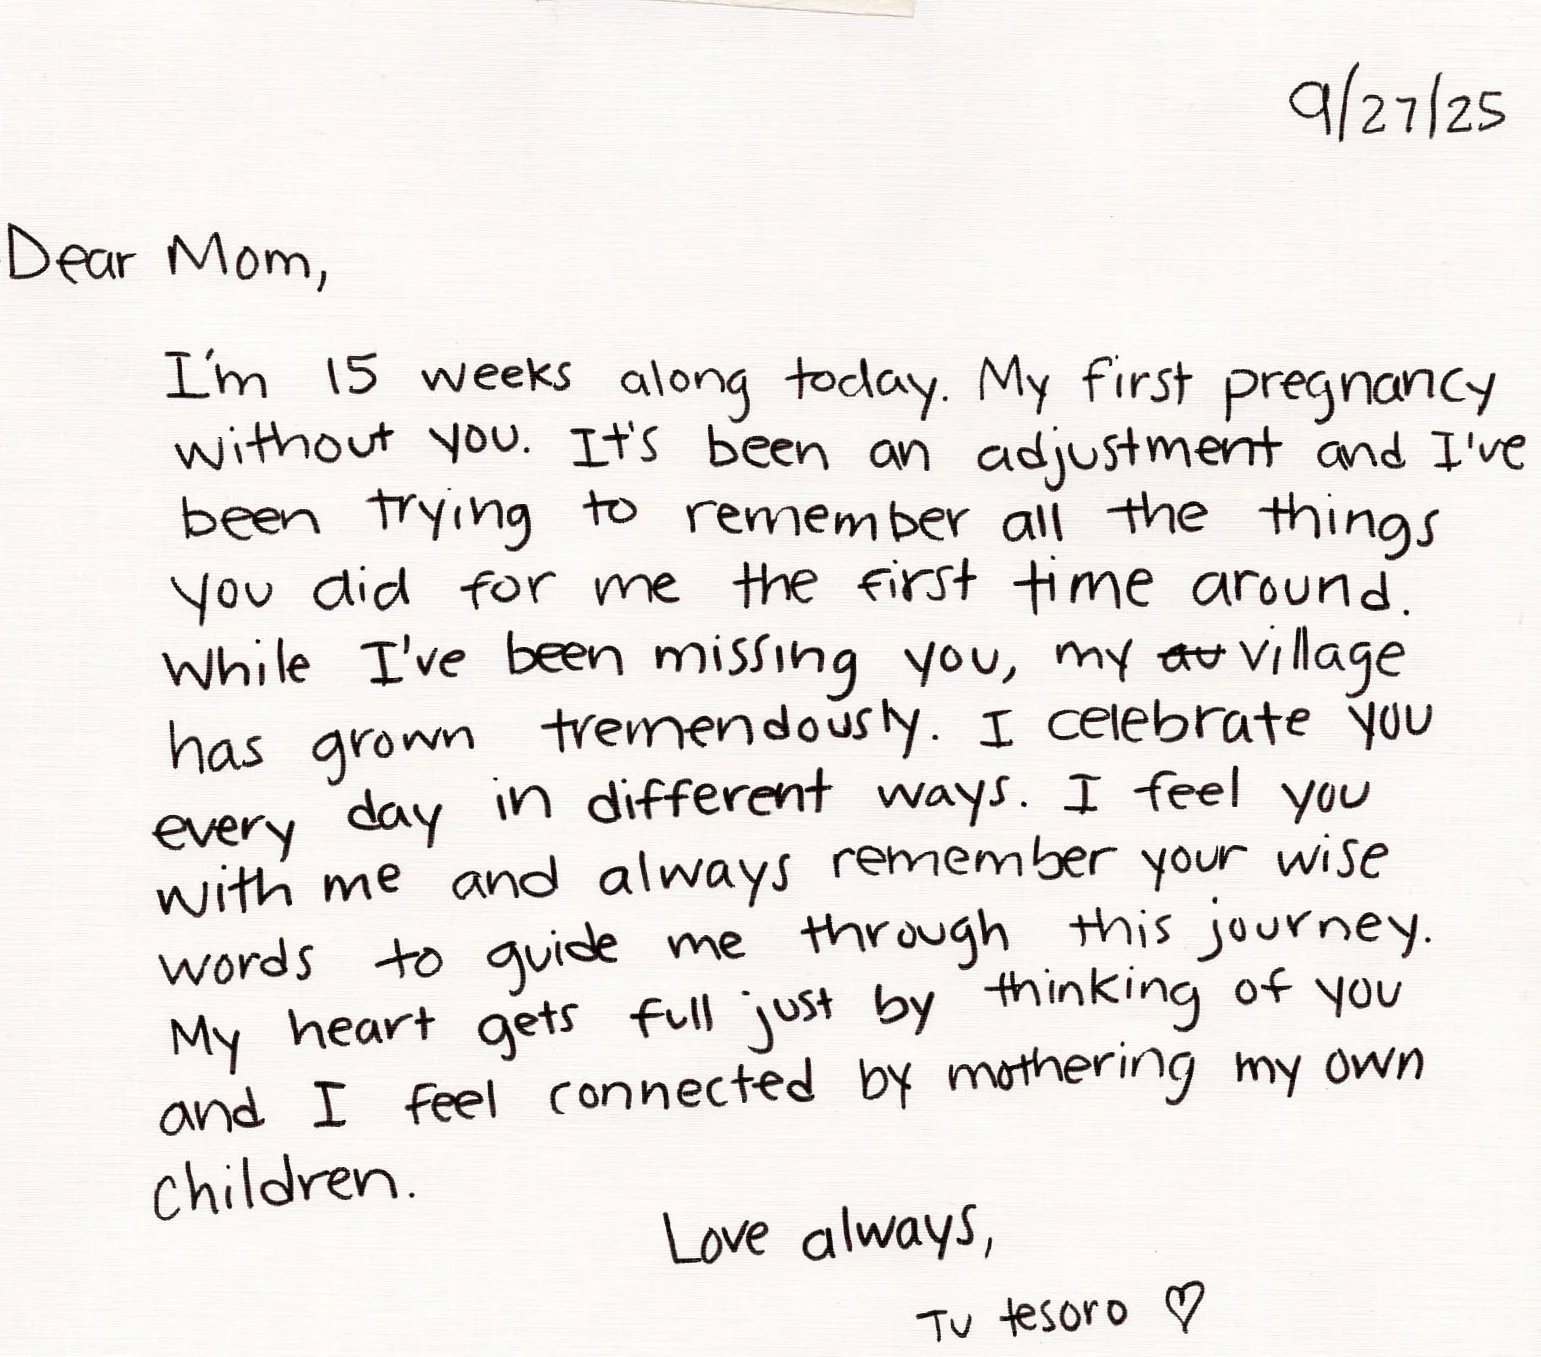 9/27/25
Dear Mom,
I'm 15 weeks along today. My first pregnancy
without you. It's been an adjustment and I've
been trying to remember all the things
you did for me the first time around.
While I've been missing you, my village
has grown tremendously. I celebrate you
every day in different ways. I feel you
with me and always remember your wise
words to guide me through this journey.
My heart gets full just by thinking of you
and I feel connected by mothering my own
children.
Love always,
Tu tesoro ♡